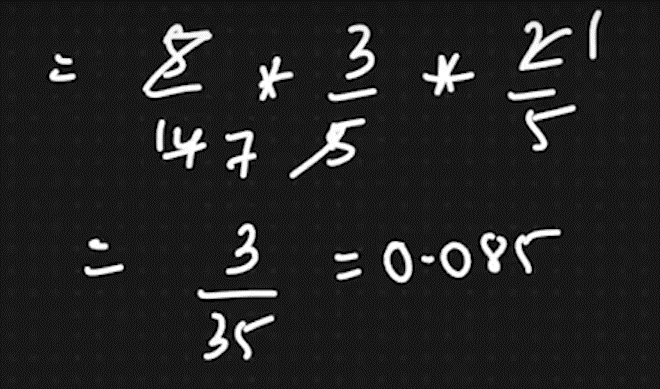 = 5/14 7 * 3/5 * 2 1/5
= 3/35 = 0.085